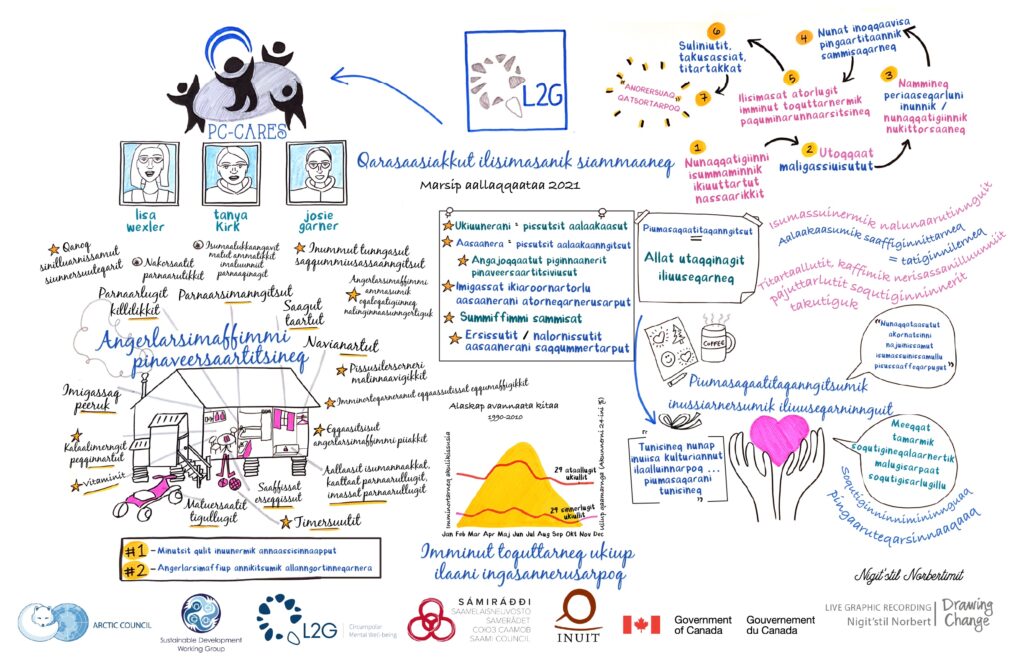 PC-CARES
L2G
lisa
wexler
tanya
Kirk
josie
garner
Qarasaasiakkut ilisimasanik siammaaneq
Marsip aallaqqaataa 2021
"ANORERSUAQ
QATSORTARPOQ"
1
Nunaqqatigiinni
isummaminnik
ikiuuttartut
nassaarikkit
2 Utoqqaat
maligassiuisutut
3
Nammineq
periaaseqarluni
inunnik /
nunaqqatigiinnik
nukittorsaaneq
4 Nunat inoqqaavisa
pingaartitaannik
sammisaqarneq
5
Ilisimasat atorlugit
imminut toquttarnermik
paquminarunnaarsitsineq
6
Suliniutit,
takusassiat,
titartakkat
7
Qanoq
sinilluarnissamut
siunnersuuteqarit
Isumaalukkaangavit
matut ammatikkit
imaluunniit
parnaqinagit
Nakorsaatit
parnaarutikkit
Inummut tunngasut
saqqummiusassaanngitsut
Angerlarsimaffimmi
ammasumik
oqaloqatigiinneq
nalinginnaasunngortiguk
Parnaarlugit
killilikkit
Parnaarsimanngitsut
Saagut
taartut
Navianartut
Angerlarsimaffimmi
pinaveersaartitsineq
Pissusilersorneri
malinnaavigikkit
Imminortoqarneranut eqqaassutissat eqqumaffigikkit
Eqqaasitsisut
angerlarsimaffimmi piiakkit
Aallaasit isumannaakkat,
kaattaat parnaarullugit,
imassat parnaarullugit
Timersuutit
Saaffissat
erseqqissut
Matuersaatit
tigullugit
vitaminit
Kalaalimerngit
peqqinnartut
Imigassaq
peeruk
#1 - Minutsit qulit inuunermik annaassisinnaapput
#2 - Angerlarsimaffiup annikitsumik allanngortinneqarnera
Ukiuunerani = pissutsit aalaakaasut
Aasaanera = pissutsit aalaakaanngitsut
Angajoqqaatut piginnaanerit
pinaveersaartitsiviusut
Imigassat ikiaroornartorlu
aasaanerani atorneqarnerusarput
Summiffimmi sammisat
Ersissutit / nalornissutit
aasaanerani saqqummertarput
Piumasaqaatitaqanngitsut
=
Allat utaqqinagit
iliuuseqarneq
isumassuinermik nalunaarutinnguit
Aalaakaasumik saaffiginnittarneq
= tatiginnilerneq
Titartaallutit, kaffimik nerisassanilluunniit
pajuttarlutit soqutiginninnerit
takutiguk
COFFEE
"Nunaqqataasutut
akornatsinni
najuinissamut
isumassuinissamullu
pisussaaffeqarpugut"
Piumasaqaatitaqanngitsumik
inussiarnersumik iliuuseqarninnguit
"Tunisineq nunap
inuiisa kulturiannut
ilaalluinnarpoq ...
piumasaqarani
tunisineq"
Meeqqat
tamarmik
soqutigineqalaarnertik
malugisarpaat
soqutigisarlugillu
soqutiginninnimininnguaq
pingaaruteqarsinnaaqaaq
Alaskap avannaata kitaa
1990-2010
29 ataallugit
ukiullit
29 sinnerlugit
ukiullit
Jan Feb Mar Apr Maj Jun Jul Aug Sep Okt Nov Dec
Imminut toquttarneq ukiup
ilaani ingasannerusarpoq
Nigit'stil Norbertimit
ARCTIC COUNCIL
Sustainable Development
Working Group
L2G
Circumpolar
Mental Well-being
SÁMIRÁĐĐI
SAAMELAISNEUVOSTO
SAMERÅDET
СОЮЗ СААМОВ
SAAMI COUNCIL
INUIT
Government
of Canada
Gouvernement
du Canada
LIVE GRAPHIC RECORDING
Nigit'stil Norbert
Drawing
Change